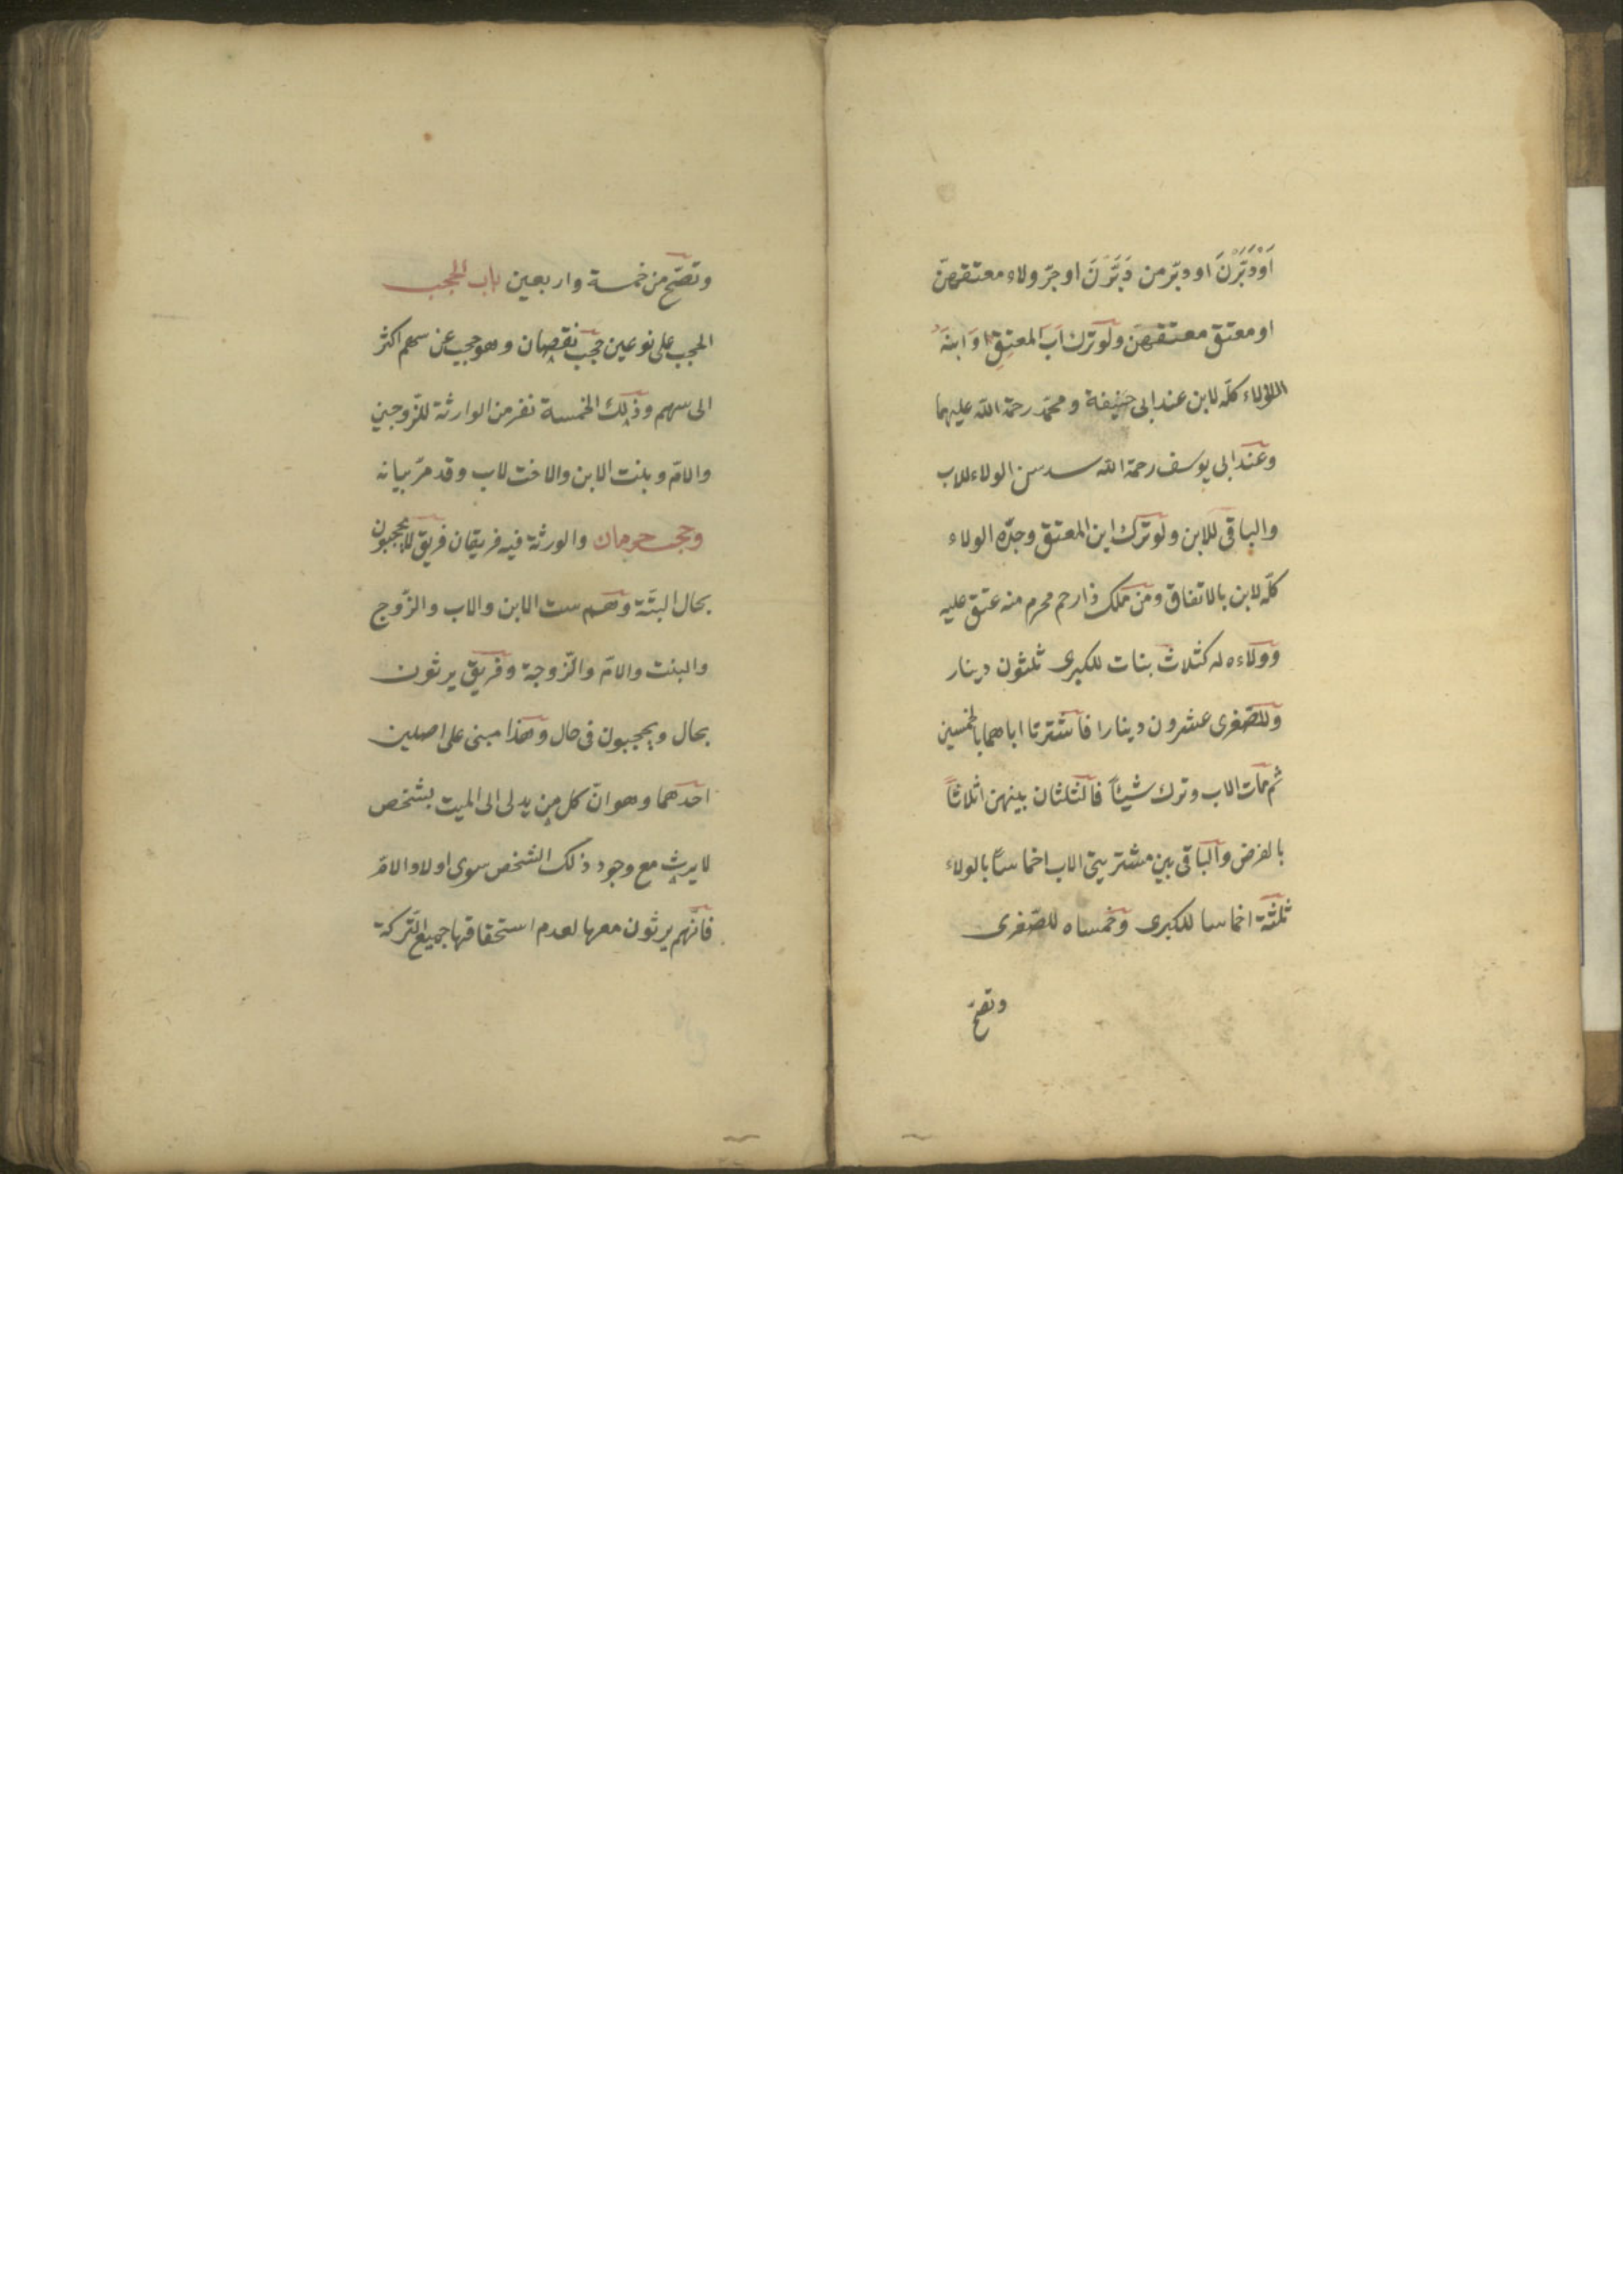 اَوْدَبَّرْنَ او دبّر من دَبَّرْنَ او جرّ ولاء معتقهنّ
او معتق معتقهنّ ولو ترك اَبَ المعتِقِ اوَ ابنهَ
الولاء كلّه لابن عند ابى حنيفة ومحمّد رحمة الله عليهما
وعند ابى يوسف رحمة الله سدس الولاء للاب
والباقى للابن ولو ترك ابن المعتق وجدّه الولاء
كلّه لابن بالاتفاق ومن ملك ذا رحم محرم منه عتق عليه
وولاءه له كثلاث بنات للكبرى ثلثون دينار
وللصّغرى عشرون دينارا فاشترتا اباهما بالخمسين
ثم مات الاب وترك شيئاً فالثلثان بينهن اثلاثاً
بالفرض والباقى بين مشتريتى الاب اخماساً بالولاء
ثلثة اخماسا للكبرى وخمساه للصّغرى
وتصحّ
وتصّح من خمسة واربعين باب الحجب
الحجب على نوعين حجب نقصان وهو حجب عن سهم اكثر
الى سهم وذلك الخمسة نفر من الوارثة للزّوجين
والامّ وبنت الابن والاخت لاب وقد مرّ بيانه
وحجب حرمان والورثة فيه فريقان فريق لا يحجبون
بحال البتّة وهم ست الابن والاب والزّوج
والبنت والامّ والزّوجة وفريق يرثون
بحال ويحجبون فى حال وهذا مبنى على اصلين
احدهما وهو انّ كل من يدلى الى الميت بشخص
لا يرث مع وجود ذلك الشخص سوى اولاد الامّ
فانّهم يرثون معها لعدم استحقاقها جميع التّركة